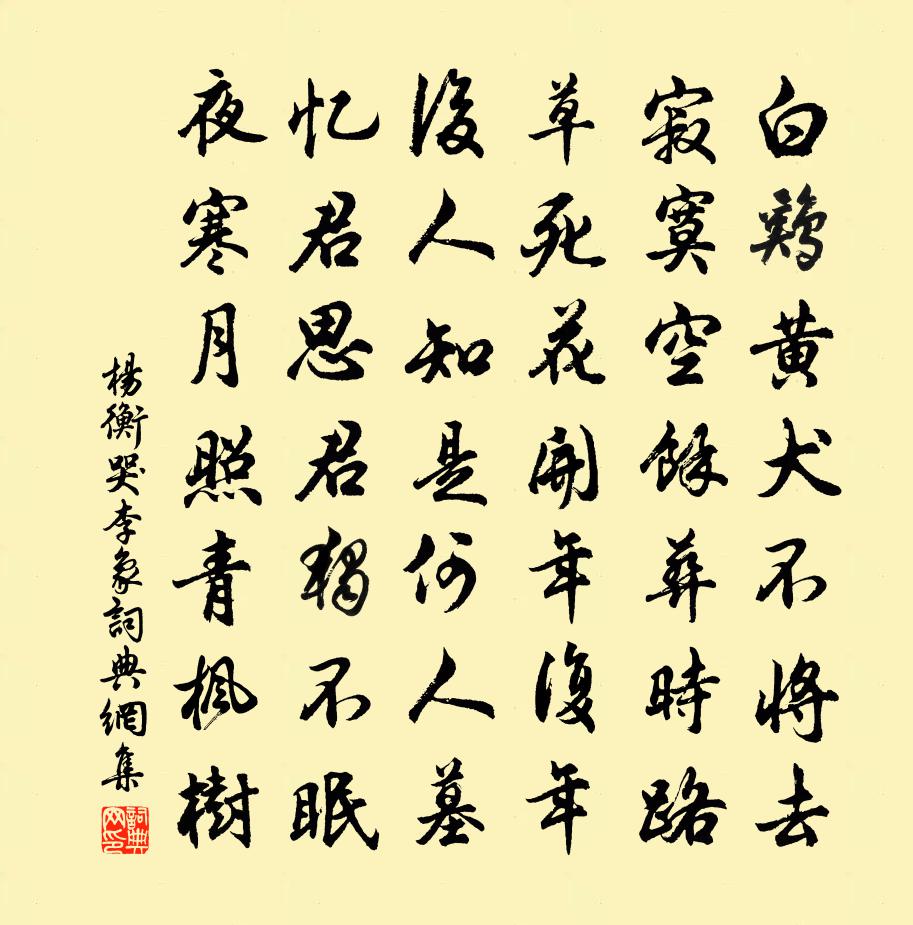 白鷄黃犬不將去
寂寞空餘葬時路
草死花開年復年
後人知是何人墓
忆君思君獨不眠
夜寒月照青楓樹
楊衡哭李象詞典網集
詞典網印